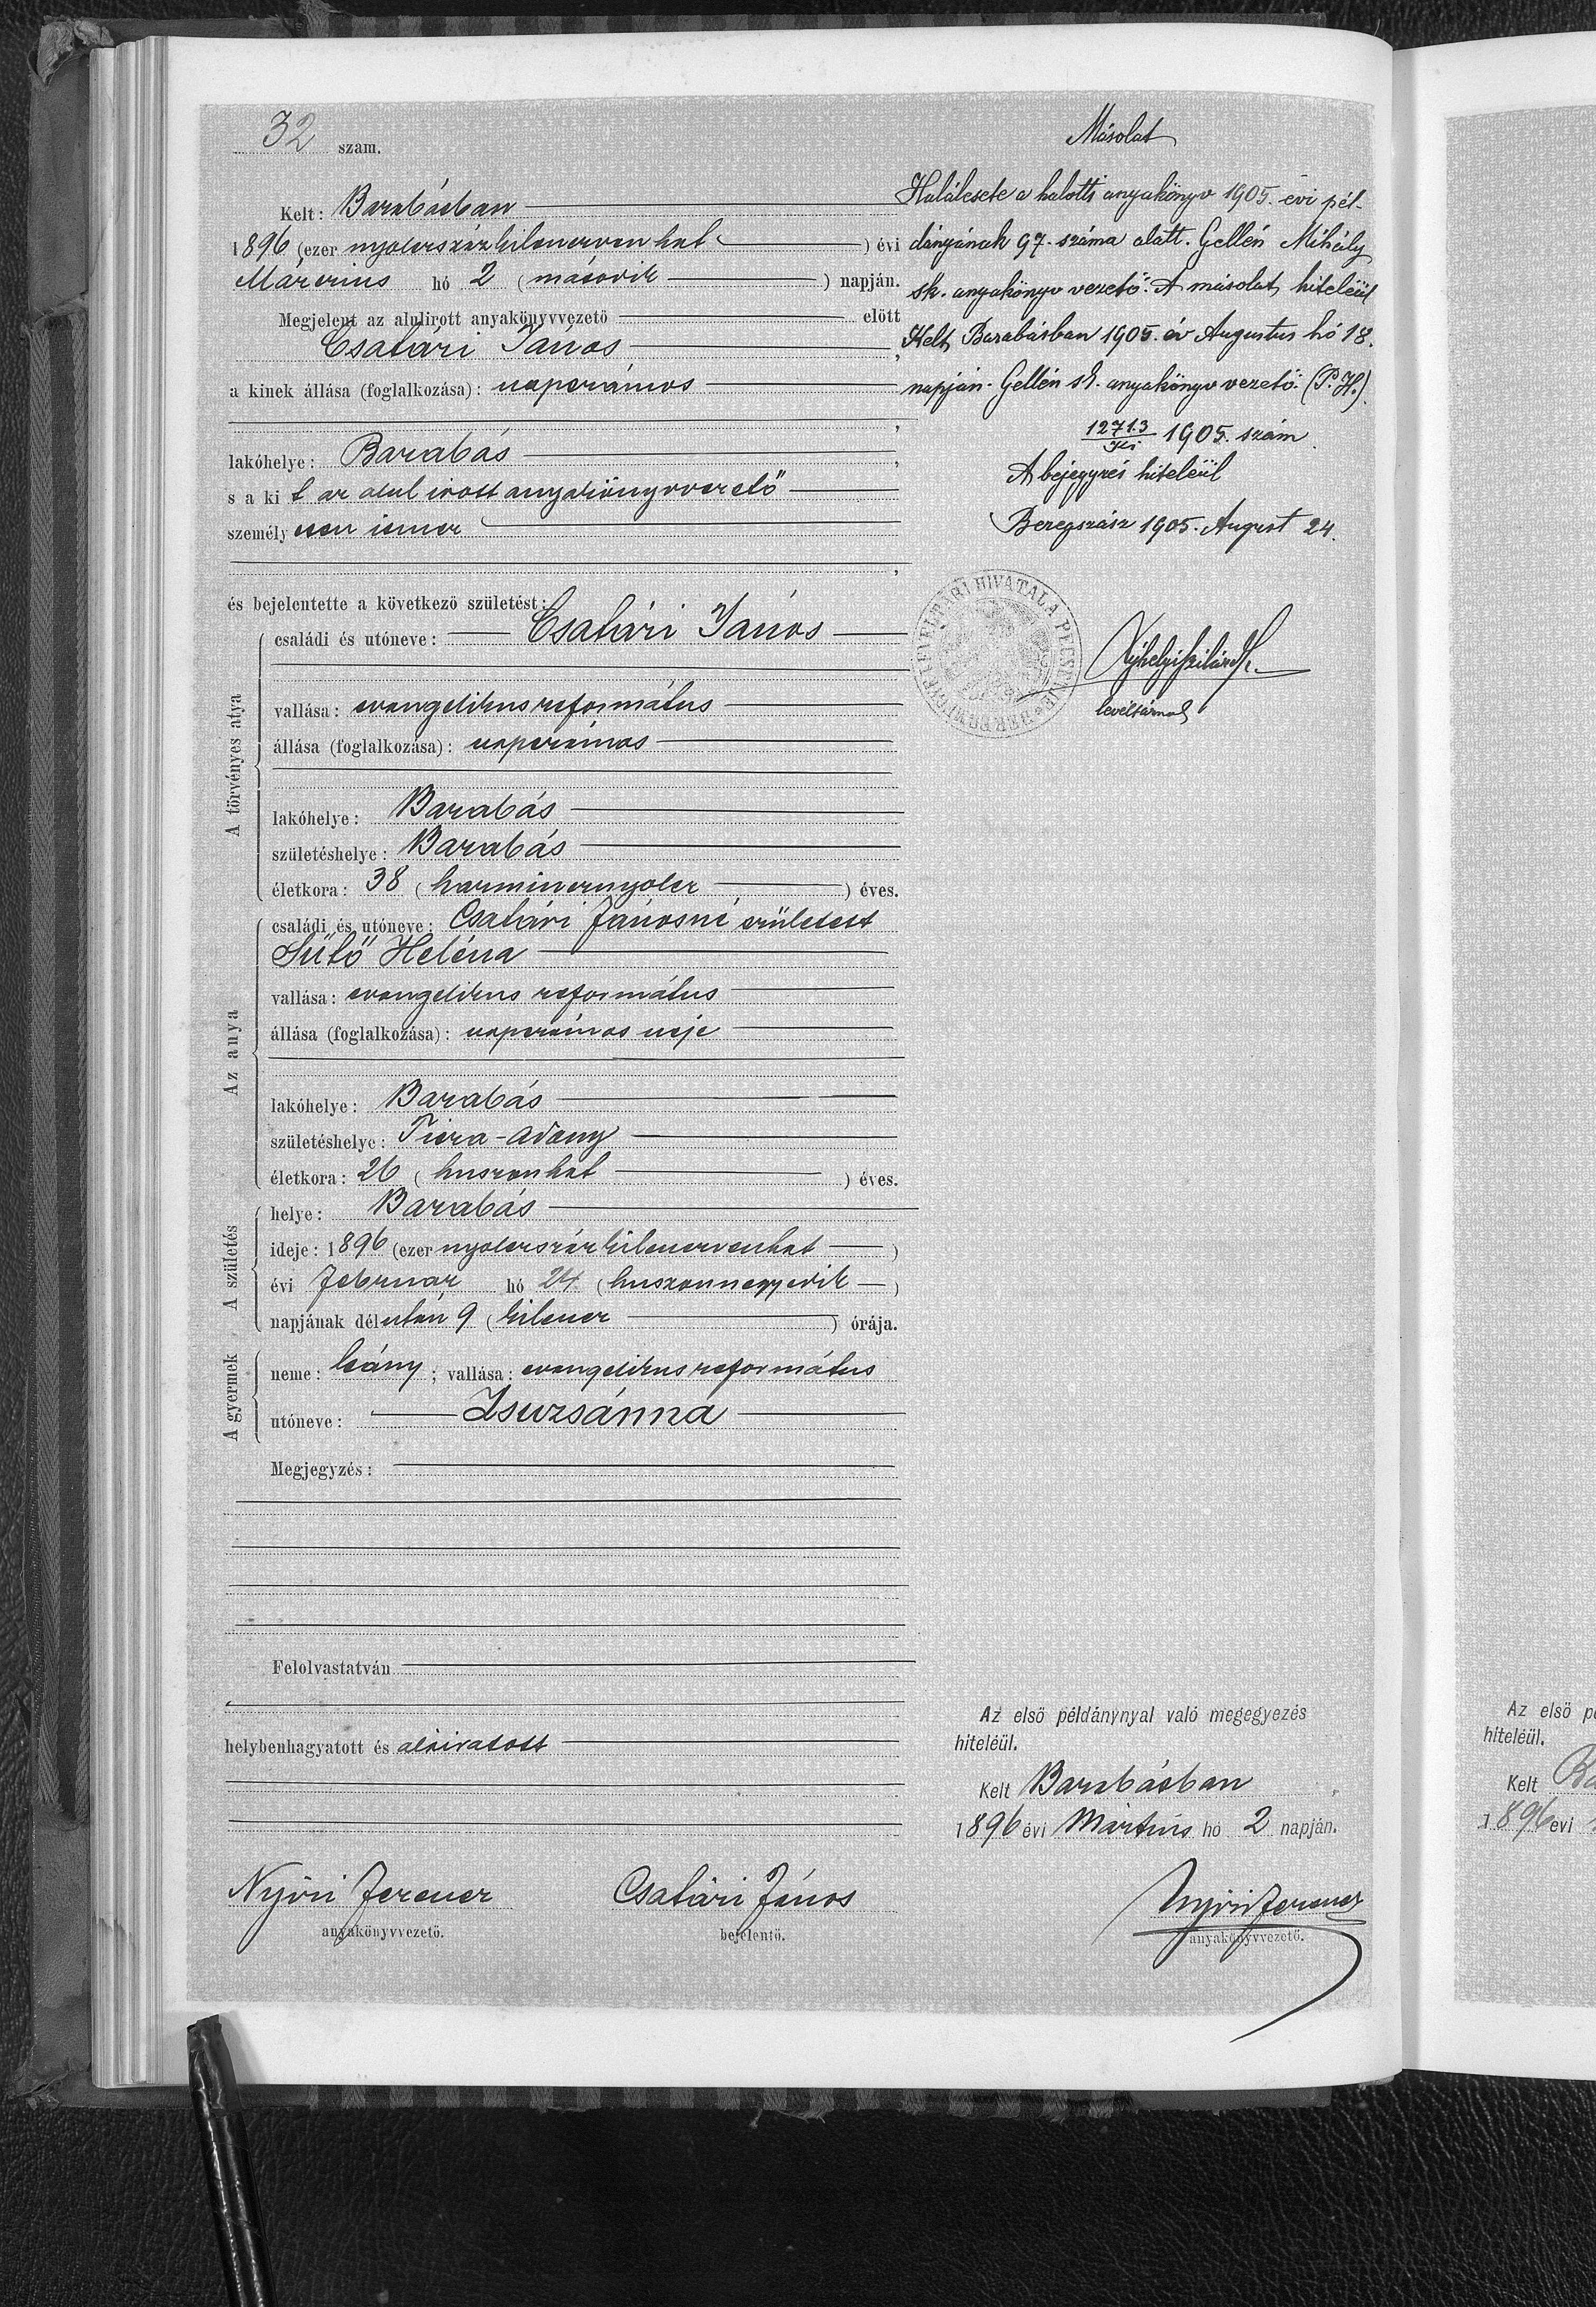 32 szám.
Kelt: Barabásban
1896 (ezer nyolczszázkilenczven hat) évi
Márczius hó 2 (második) napján.
Megjelent az alulirott anyakönyvvezető előtt
Csatári János,
a kinek állása (foglalkozása): napszámos
,
lakóhelye: Barabás,
s a kit az alul irott anyakönyvvezető
személyesen ismer
,
és bejelentette a következő születést:
A törvényes atya
családi és utóneve: Csatári János
vallása: evangelikus református
állása (foglalkozása): napszámos
lakóhelye: Barabás
születéshelye: Barabás
életkora: 38 (harmincznyolcz) éves.
Az anya
családi és utóneve: Csatári Jánosné született
Sütő Heléna
vallása: evangelikus református
állása (foglalkozása): napszámos neje
lakóhelye: Barabás
születéshelye: Tisza-Adony
életkora: 26 (huszonhat) éves.
A születés
helye: Barabás
ideje: 1896 (ezer nyolczszázkilenczvenhat)
évi Február hó 24 (huszonnegyedik)
napjának délután 9 (kilencz) órája.
A gyermek
neme: leány; vallása: evangelikus református
utóneve: Zsuzsánna
Megjegyzés:
Felolvastatván
helybenhagyatott és aláiratott
Nyiri Ferencz
anyakönyvvezető.
Csatári János
bejelentő.
Másolat
Halálesete a halotti anyakönyv 1905. évi pél-
dányának 97. száma alatt. Gellén Mihály
sk. anyakönyv vezető. A másolat hiteléül
Kelt Barabásban 1905. év Augustus hó 18.
napján. Gellén sk. anyakönyv vezető. (P.H.)
12713 1905. szám
A bejegyzés hiteléül
Beregszász 1905. August 24.
LEVÉLTÁRI HIVATALA PECSÉTJE
levéltárnok
Az első példánynyal való megegyezés
hiteléül.
Kelt Barabásban,
1896 évi Martius hó 2 napján.
Nyiri Ferencz
anyakönyvvezető.
Az első
hiteléül.
Kelt
1896 évi